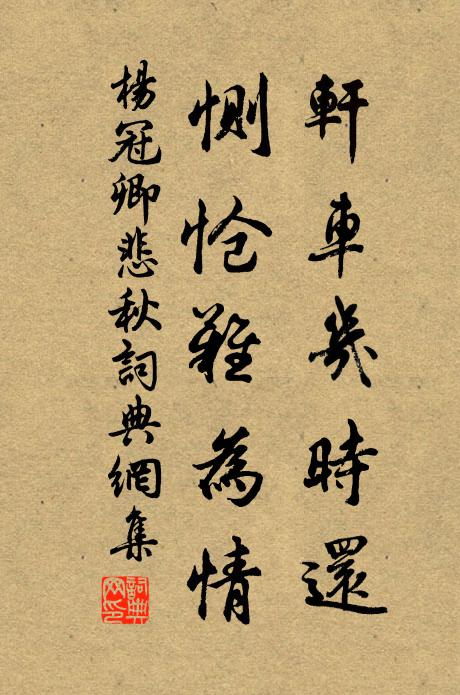 軒車幾時還
惻愴難為情
楊冠卿悲秋詞典網集
詞典網印